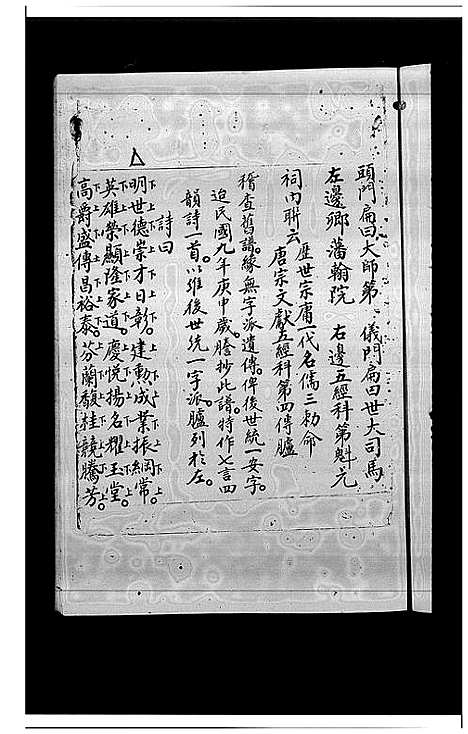 頭門扁曰大師第 儀門扁曰世大司馬
左邊卿藩翰院 右邊五經科第魁元
祠內聯云 歷世宗庸一代名儒三勅命
唐宗文獻五經科第四傳臚
稽查舊譜緣無字派遺傳。俾後世統一安字。
迨民國九年庚申歲。謄抄此譜。特作七言四
韻詩一首。以維後世統一字派。臚列於左。
詩曰
明世德崇才日彰。建勲成業振綱常。
英雄榮顯隆家道。慶悅揚名耀玉堂。
高爵盛傳昌裕泰。芬蘭馥桂競騰芳。